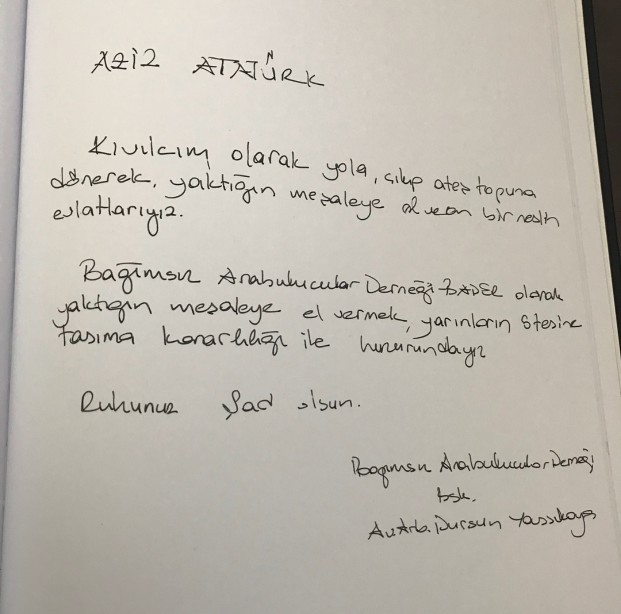 AZİZ ATATÜRK
Kıvılcım olarak yola, çıkıp ateş topuna
dönerek, yaktığın meşaleye el veren bir neslin
evlatlarıyız.
Bağımsız Arabulucular Derneği BADEL olarak
yaktığın meşaleye el vermek, yarınların ötesine
taşıma kararlılığı ile huzurundayız
Ruhunuz Şad olsun.
Bağımsız Arabulucular Derneği
bşk.
Av.Arb. Dursun Yassıkaya